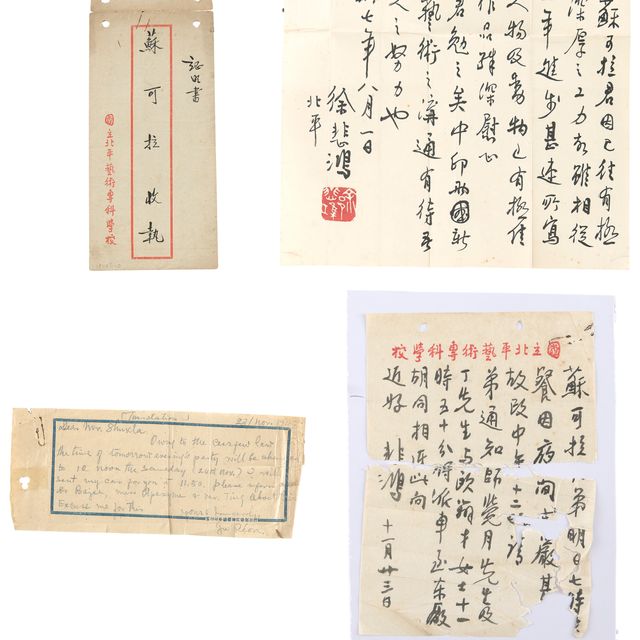 証明書
蘇可拉收執
國立北平藝術專科學校
蘇可拉君因已往有極
深厚之工力故雖相從
年進步甚速所寫
人物及動物已有極佳
作品殊深慰
君勉之矣中印兩國新
藝術之溝通有待吾
人之努力也
徐悲鴻
七年八月一日
北平
(Translation) 23/Nov. 19
Dear Mr. Shukla
Owing to the curfew law
the time of tomorrow evening's party will be
to 12 noon the same day (24th Nov.) I will
sent my car for you at 11.50. please inform
miss & Mr. Ting about
Excuse me for this
yours sincerely
Ju Péon
國立北平藝術專科學校
蘇可拉弟明日七時
餐因夜間戒嚴
故改中午十二請
弟通知師覺月先生及
丁先生與歐翁女士十一
時五十分將派車至東廠
胡同相迎此問
近好 悲鴻 十一月廿三日